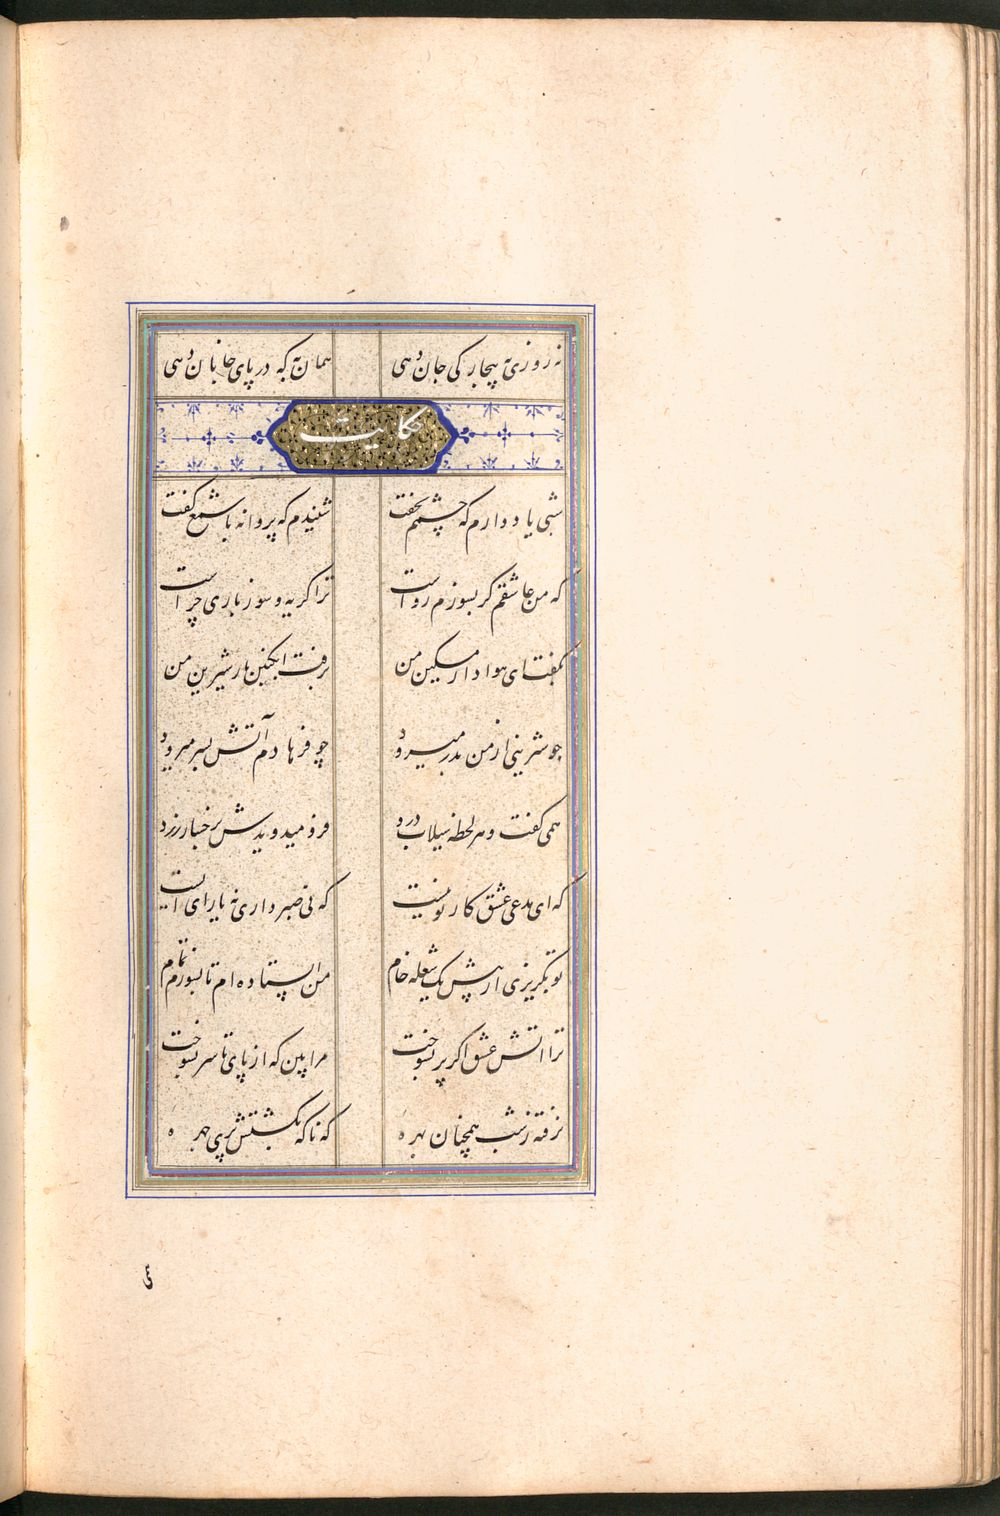 نه روزی به بیچارگی جان دهی همان به که در پای جانان دهی
حکایت
شبی یاد دارم که چشمم نخفت شنیدم که پروانه با شمع گفت
که من عاشقم گر بسوزم رواست ترا گریه و سوز باری چراست
بگفت ای هوادار مسکین من برفت انگبین یار شیرین من
چو شیرینی از من بدر میرود چو فرهادم آتش بسر میرود
همی گفت و هر لحظه سیلاب درد فرو میدویدش برخسار زرد
که ای مدعی عشق کار تو نیست که نی صبر داری نه یارای ایست
تو بگریزی از پیش یک شعله خام من استاده ام تا بسوزم تمام
ترا آتش عشق اگر پر بسوخت مرا بین که از پای تا سر بسوخت
نرفته ز شب همچنان بهره که ناگه بکشتش پری چهره